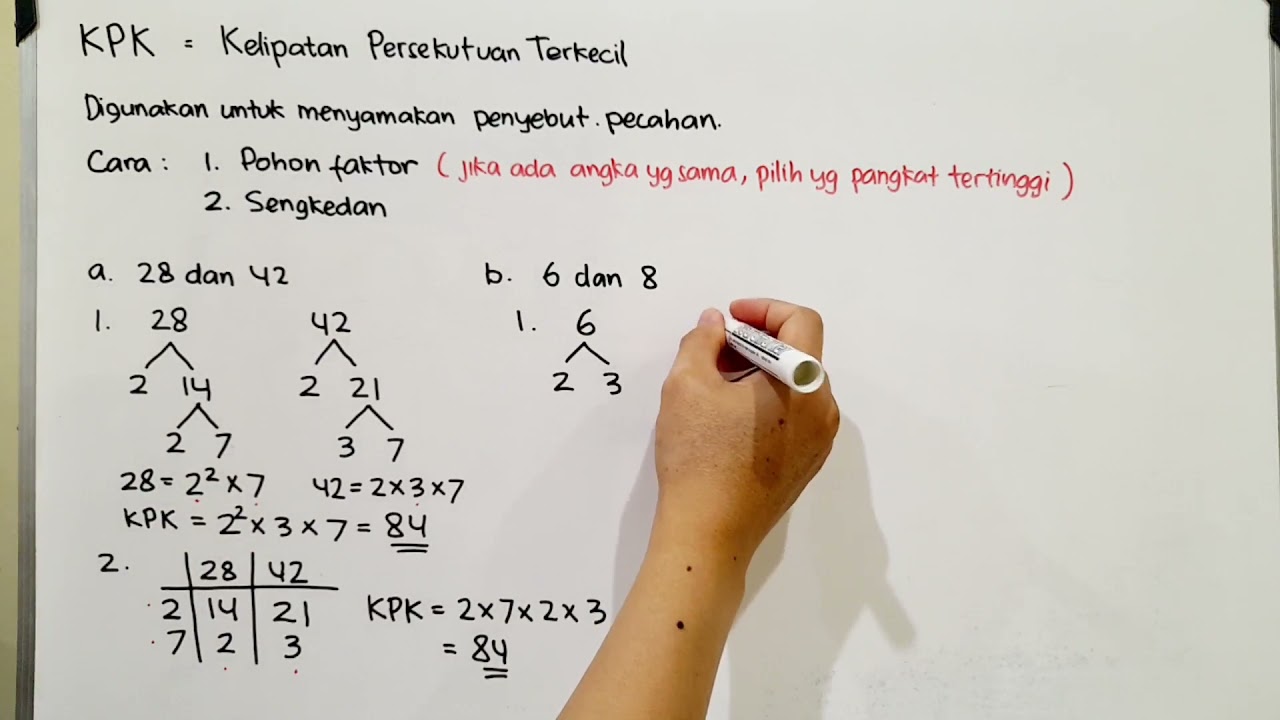 KPK = Kelipatan Persekutuan Terkecil
Digunakan untuk menyamakan penyebut. pecahan.
Cara : 1. Pohon faktor ( jika ada angka yg sama, pilih yg pangkat tertinggi )
2. Sengkedan
a. 28 dan 42
1. 28 42
2 14 2 21
2 7 3 7
28 = 2² × 7 42 = 2 × 3 × 7
KPK = 2² × 3 × 7 = 84
2. 28 42
2 14 21
7 2 3
KPK = 2 × 7 × 2 × 3
= 84
b. 6 dan 8
1. 6
2 3